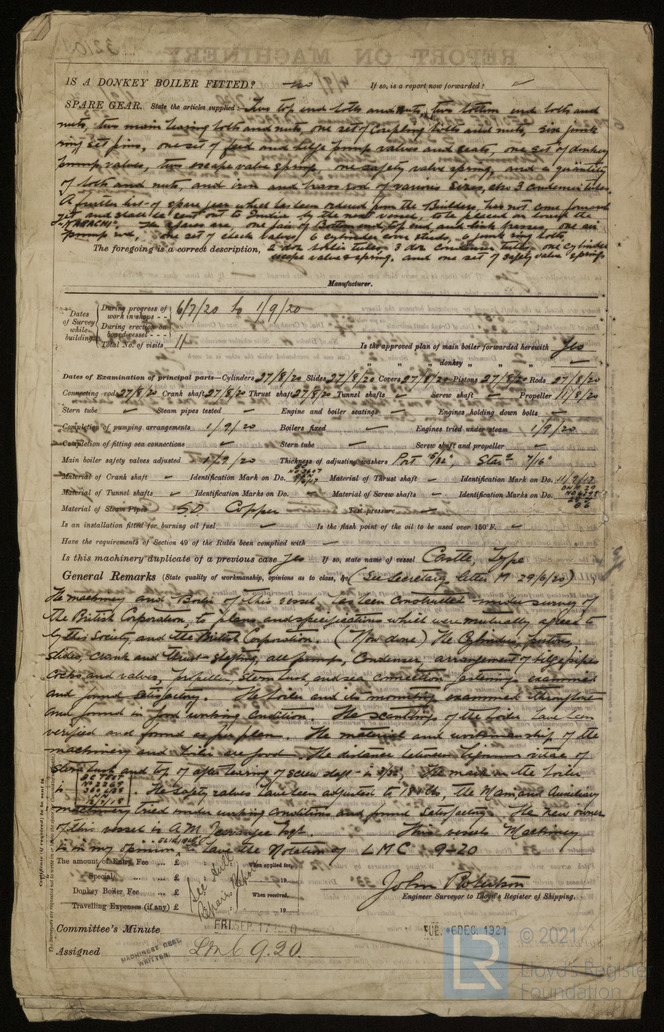 IS A DONKEY BOILER FITTED? no If so, is a report now forwarded?
SPARE GEAR. State the articles supplied:- Two top end bolts and nuts, two bottom end bolts and
nuts, two main bearing bolts and nuts, one set of coupling bolts and nuts, six junk
ring set pins, one set of feed and bilge pump valves and seats, one set of donkey
pump valves, two escape valve springs, one safety valve spring, and a quantity
of bolts and nuts, and iron and brass rod of various sizes, also 3 condenser tubes.
A further list of spare gear which has been ordered from the Builders, has not come forward
yet and shall be sent out to India by the next vessel, to be placed on board the
"KARACHI". The spares are, one pair of Bottom end, top end and link brasses, one air
pump rod, one set of check valves, 6 cylinder cover studs, 6 junk ring bolts,
The foregoing is a correct description, 2 doz boiler tubes, 3 doz condenser tubes, one cylinder
escape valve spring, and one set of safety valve springs
Manufacturer.
Dates of Survey while building
During progress of work in shops - - 6/7/20 to 1/9/20
During erection on board vessel - - -
Total No. of visits 11
Is the approved plan of main boiler forwarded herewith Yes
" " " donkey " " "
Dates of Examination of principal parts—Cylinders 27/8/20 Slides 27/8/20 Covers 27/8/20 Pistons 27/8/20 Rods 27/8/20
Connecting rods 27/8/20 Crank shaft 27/8/20 Thrust shaft 27/8/20 Tunnel shafts Screw shaft Propeller 11/8/20
Stern tube Steam pipes tested Engine and boiler seatings Engines holding down bolts
Completion of pumping arrangements 1/9/20 Boilers fixed Engines tried under steam 1/9/20
Completion of fitting sea connections Stern tube Screw shaft and propeller
Main boiler safety valves adjusted 1/9/20 Thickness of adjusting washers Port 15/32", Starb 7/16"
Material of Crank shaft Identification Mark on Do. Material of Thrust shaft Identification Mark on Do.
Material of Tunnel shafts Identification Marks on Do. Material of Screw shafts Identification Marks on Do.
Material of Steam Pipes S.D. Copper Test pressure
Is an installation fitted for burning oil fuel Is the flash point of the oil to be used over 150°F.
Have the requirements of Section 49 of the Rules been complied with
Is this machinery duplicate of a previous case Yes If so, state name of vessel Castle, Type
General Remarks (State quality of workmanship, opinions as to class, &c. (See Secretary letter M 29/6/20)
The machinery and Boiler of this vessel has been constructed under survey of
the British Corporation, to plans and specifications which were mutually agreed to
by this Society and the British Corporation. (Now done) The Cylinders, pistons,
slides, crank and thrust shafting, all pumps, Condenser, arrangement of bilge pipes
cocks and valves, propeller, stern bush and sea connection fastenings examined
and found satisfactory. The boiler and its mountings examined throughout
and found in good working condition. The scantlings of the boiler have been
verified and found as per plan. The material and workmanship of the
machinery and boiler are good. The distance between lignum vitae of
stern bush and top of after bearing of screw shaft is 3/32", The mark on the boiler
is . The safety valves have been adjusted to 180 lbs, the Main and Auxiliary
machinery tried under working conditions and found satisfactory. The new owner
of this vessel is A.M. Jeevanjee Esqr. This vessels Machinery
is in my opinion to have the Notation of L M C 9-20
The amount of Entry Fee ... £ : : When applied for,
Special ... £ : : 19
Donkey Boiler Fee ... £ : : When received,
Travelling Expenses (if any) £ : : 19
John Robertson
Engineer Surveyor to Lloyd's Register of Shipping.
Committee's Minute FRI. SEP. 17 TUE. 6 DEC. 1921
Assigned LMC 9.20.
MACHINERY CERT. WRITTEN.
LR
© 2021
Lloyd's Register
Foundation